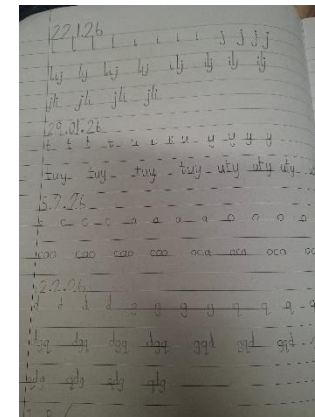 22.1.26
l l l l i i i i j j j j
lij lij lij lij ilj ilj ilj ilj
jli jli jli jli
29.01.26
t t t t u u u u y y y y
tuy tuy tuy tuy uty uty uty
c c c a a a a o o o o
cao cao cao cao oca oca oca oca
2.2.26
d d d d g g g g q q q q
dgq dgq dgq dgq gqd gqd gqd
qdg qdg qdg qdg